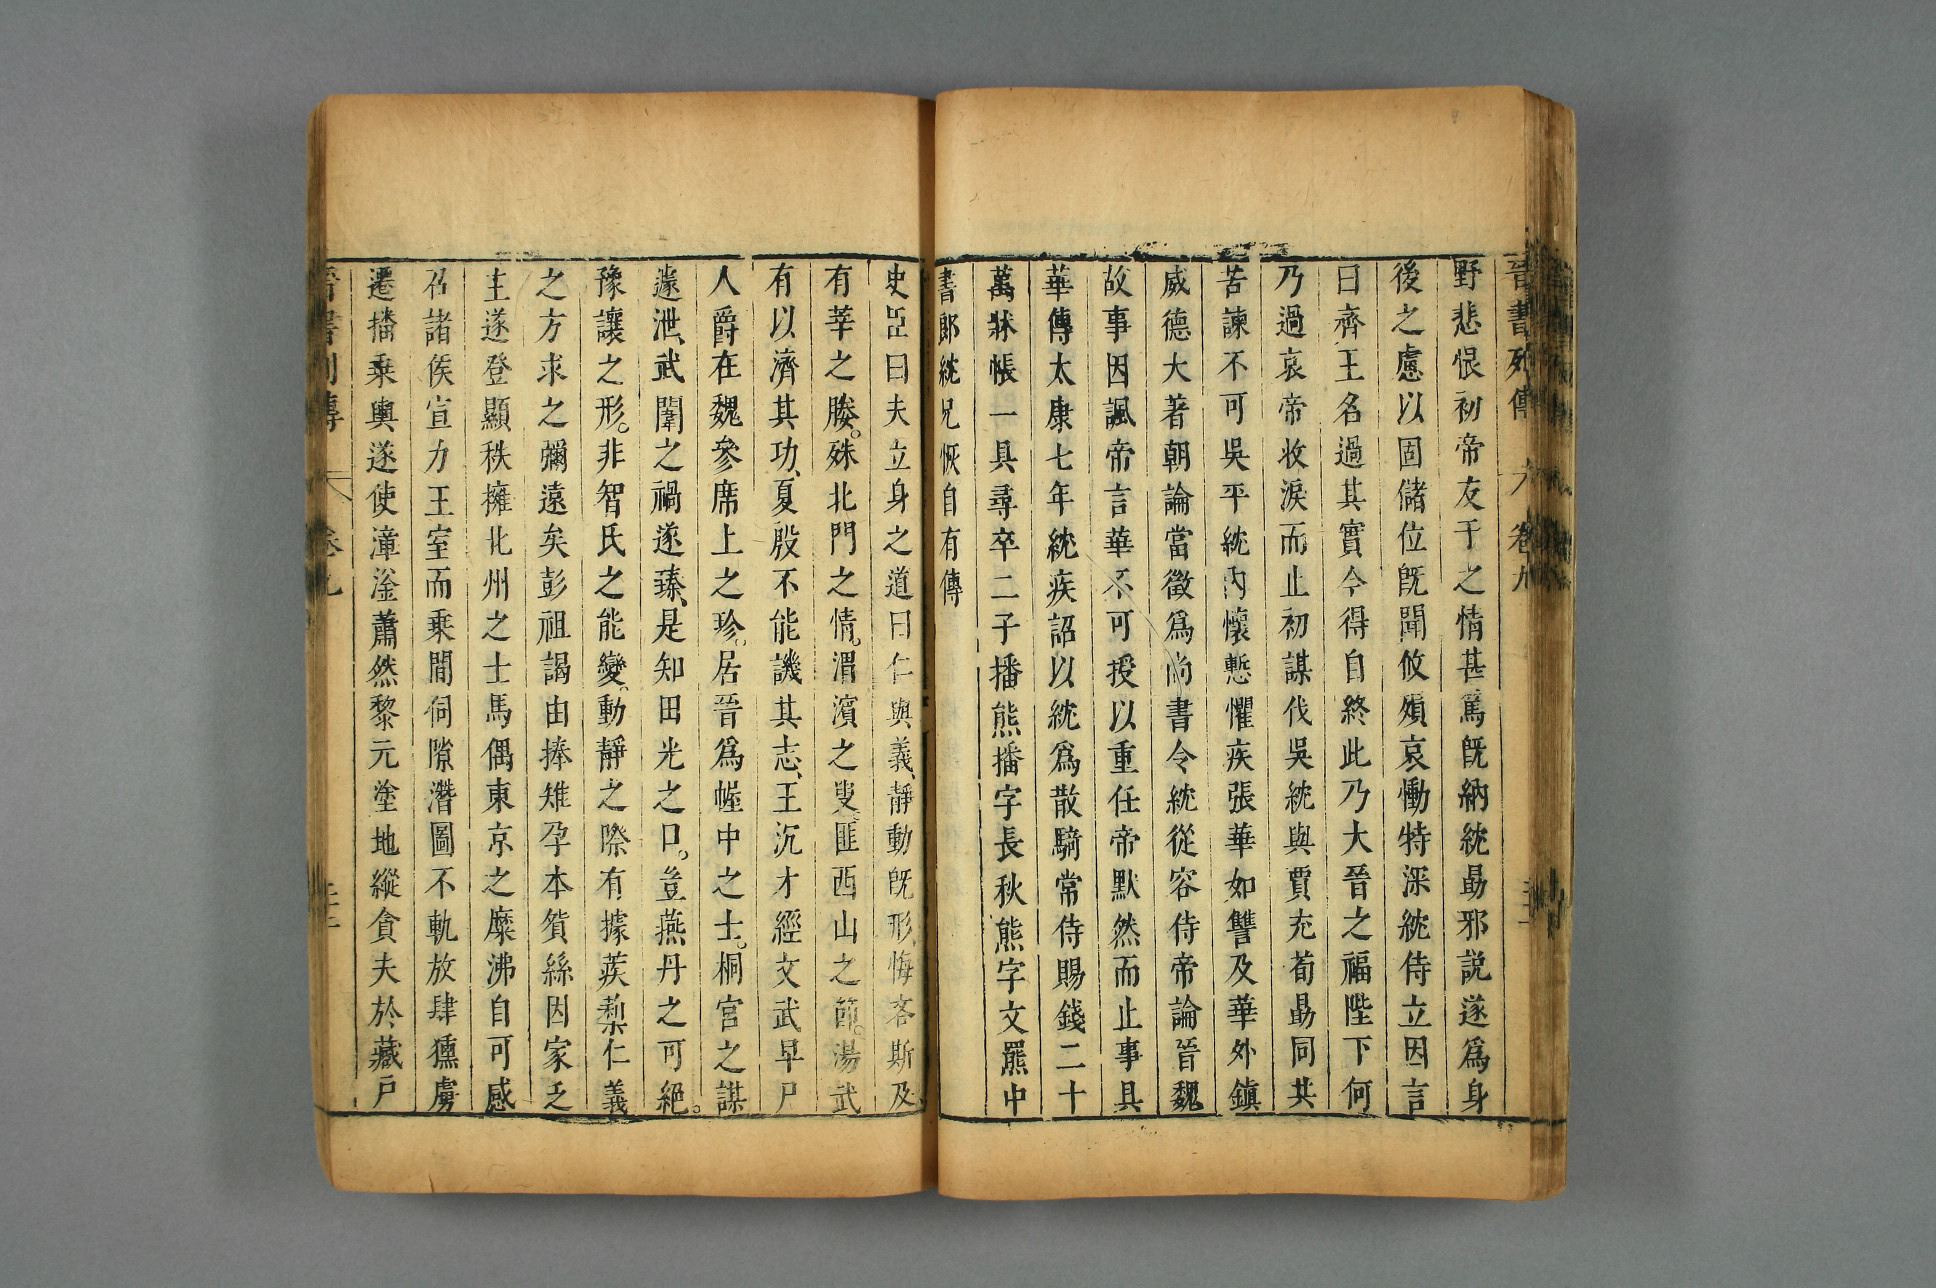 晉書列傳 卷九
野悲恨初帝友于之情甚篤旣納紞勗邪説遂爲身
後之慮以固儲位旣聞攸殞哀慟特深紞侍立因言
曰齊王名過其實今得自終此乃大晉之福陛下何
乃過哀帝收淚而止初謀伐吳紞與賈充荀勗同共
苦諫不可吳平紞內懷慙懼疾張華如讐及華外鎮
威德大著朝論當徵爲尚書令紞從容侍帝論晉魏
故事因諷帝言華不可授以重任帝默然而止事具
華傳太康七年紞疾詔以紞爲散騎常侍賜錢二十
萬牀帳一具尋卒二子播熊播字長秋熊字文羆中
書郎紞兄恢自有傳
史臣曰夫立身之道曰仁與義、靜動旣形、悔吝斯及、
有莘之媵。殊北門之情。渭濱之叟、匪西山之節。湯武
有以濟其功、夏殷不能譏其志、王沉才經文武早尸
人爵在魏參席上之珍。居晉爲幄中之士。桐宮之謀
遽泄、武闈之禍遂臻、是知田光之口。豈燕丹之可絕。
豫讓之形。非智氏之能變。動靜之際有據蒺梨仁義
之方求之彌遠矣彭祖謁由捧雉孕本貿絲因家乏
主遂登顯秩擁北州之士馬偶東京之糜沸自可感
召諸侯宣力王室而乘閒伺隙潛圖不軌放肆獯虜
遷播乘輿遂使漳滏蕭然黎元塗地縱貪夫於藏戶
晉書列傳 卷九